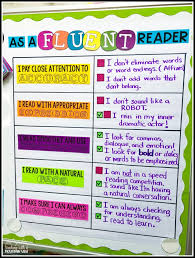 AS A FLUENT READER
I PAY CLOSE ATTENTION TO
ACCURACY
I don't eliminate words
or word endings.
I don't add words that
don't belong.
I READ WITH APPROPRIATE
EXPRESSION
I don't sound like a
ROBOT.
I run in my inner
dramatic actor!
I look for commas,
dialogue, and emotion!
I look for bold or italics
or words to be emphasized.
I READ WITH A NATURAL
PACE
I am not in a speed
reading competition.
I sound like I'm having
a natural conversation.
I MAKE SURE I CAN ALWAYS
COMPREHEND
I am always checking
for understanding.
I read to learn.